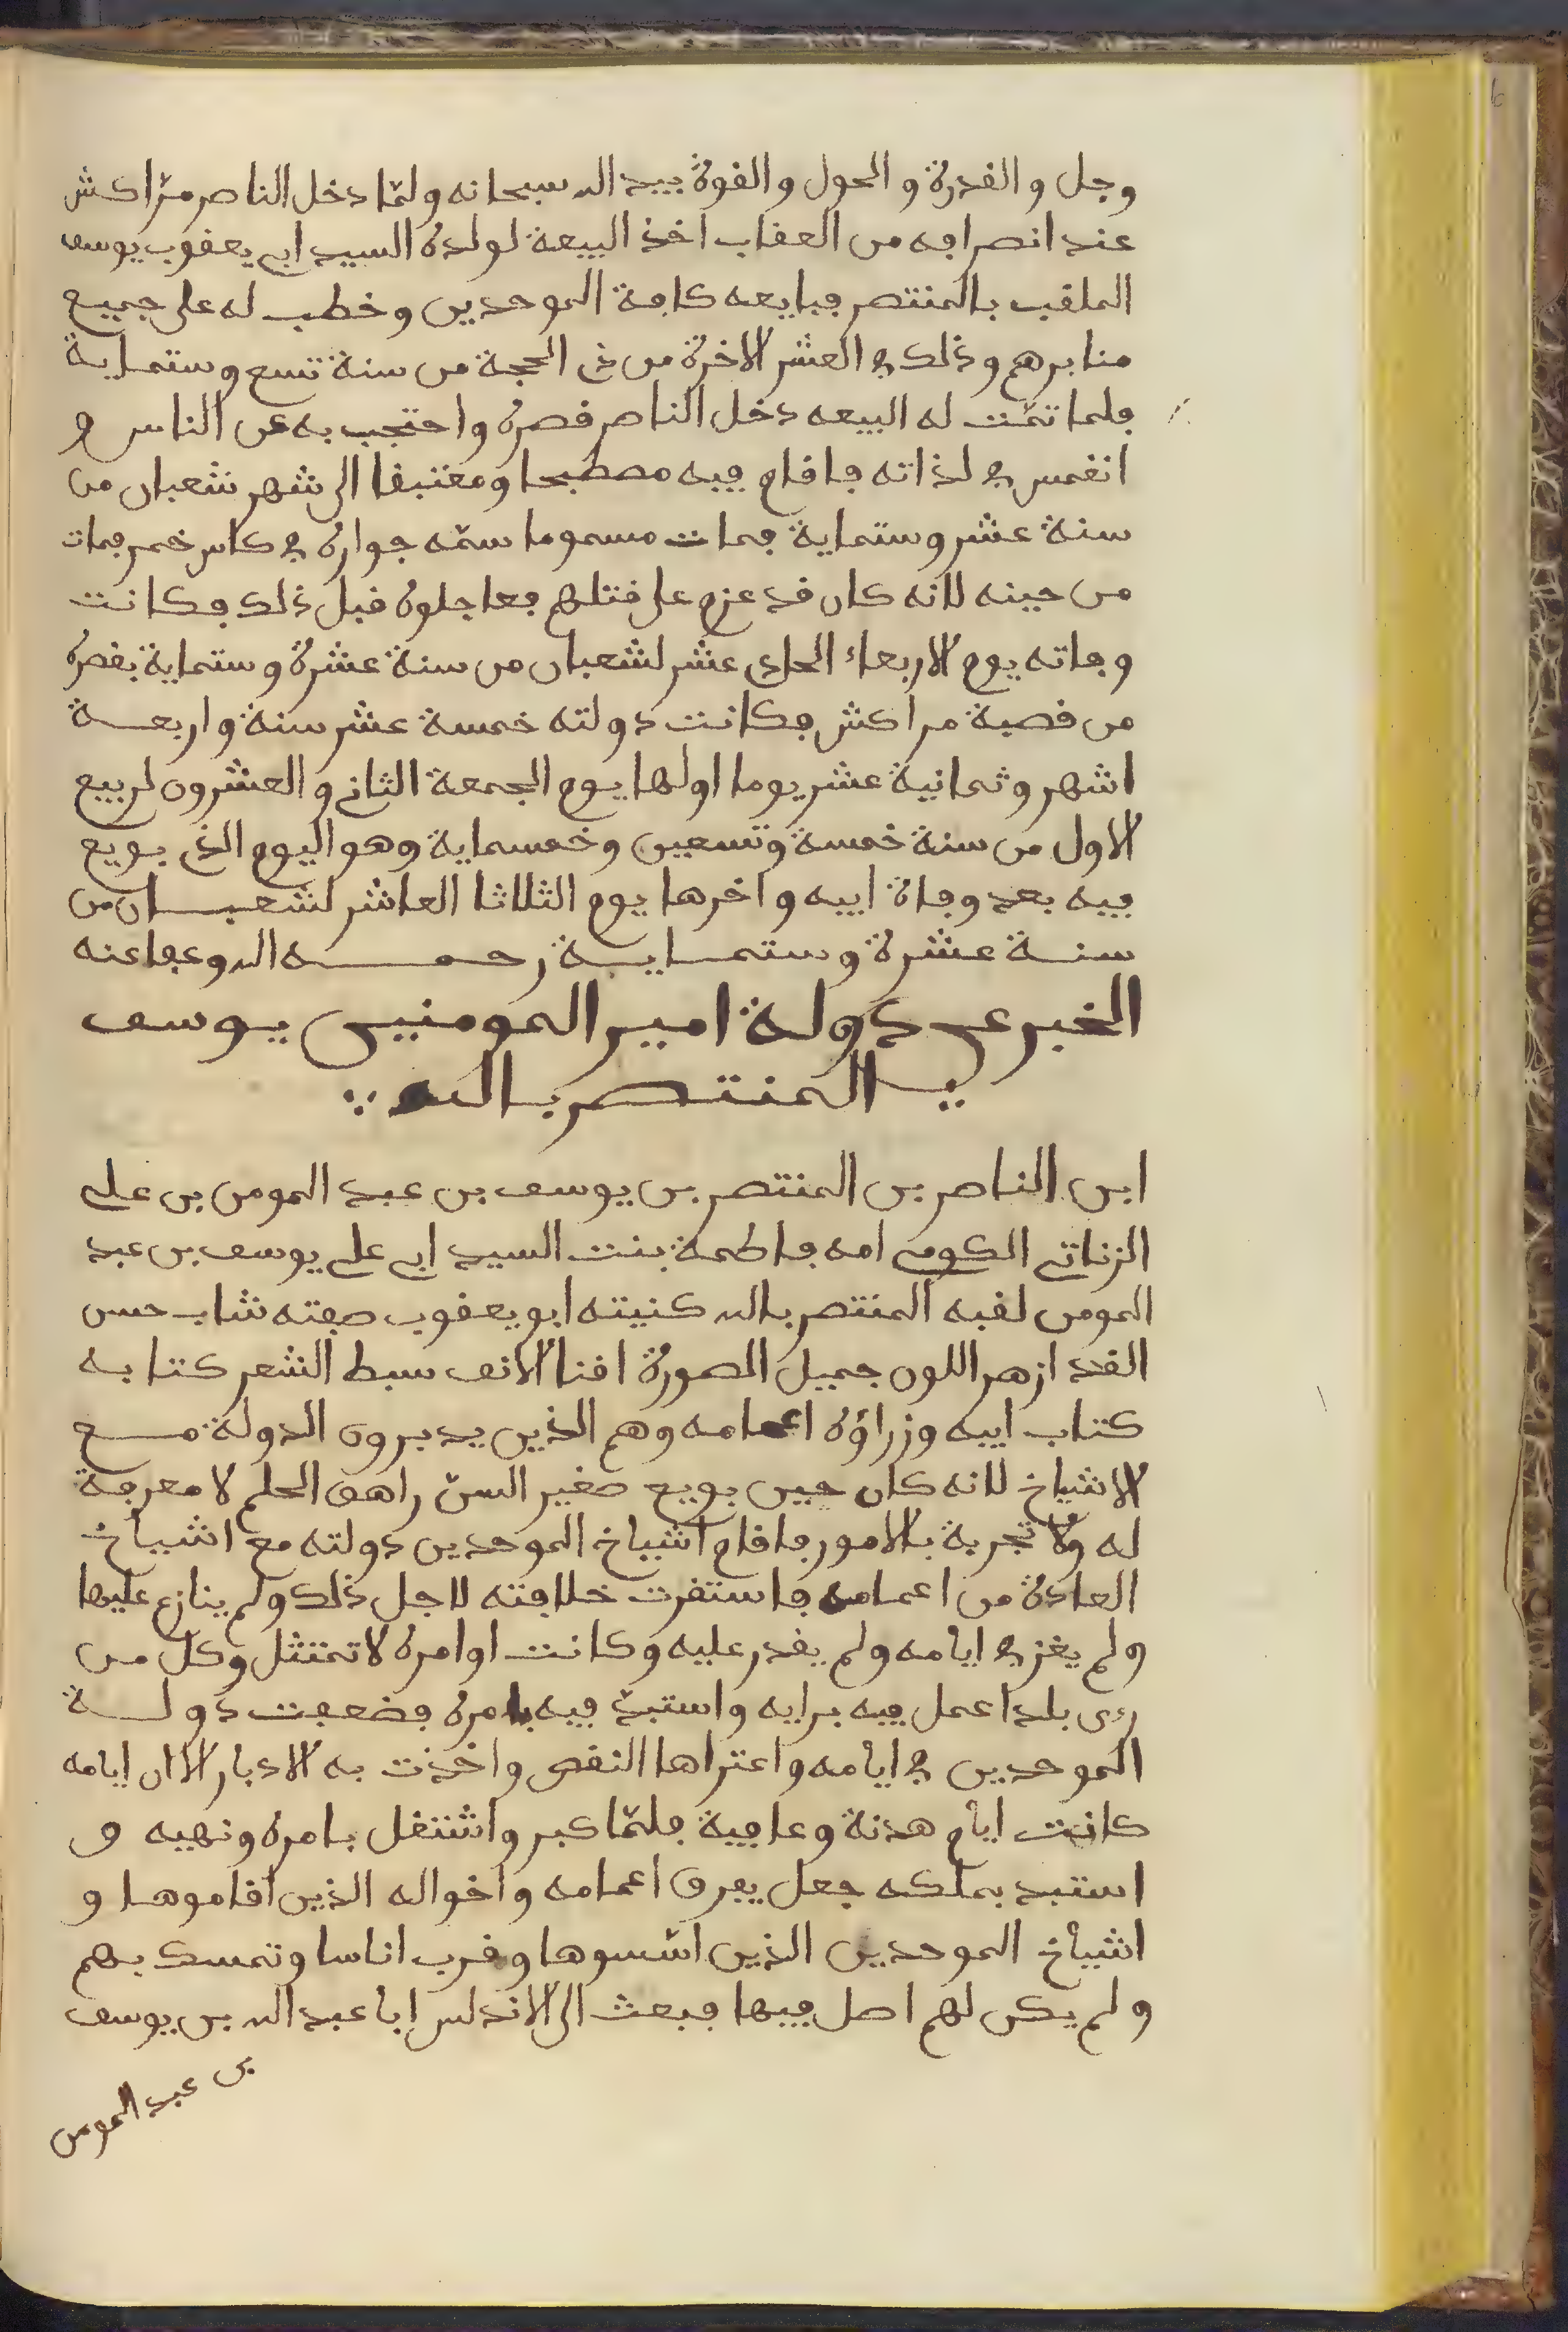 وجل والقدرة والحول والقوة بيد الله سبحانه ولمّا دخل الناصر مرّاكش
عند انصرافه من العقاب اخذ البيعة لولده السيد ابي يعقوب يوسف
الملقب بالمنتصر فبايعه كافة الموحدين وخطب له على جميع
منابرهم وذلك في العشر الاخرة من ذي الحجة من سنة تسع وستماية
فلما تمّت له البيعه دخل الناصر قصره واحتجب به عن الناس و
انغمس في لذاته فاقام فيه مصطبحا ومغتبقا الى شهر شعبان من
سنة عشر وستماية فمات مسموما سمّه جواره في كاس خمر فمات
من حينه لانه كان قد عزم على قتلهم فعاجلوه قبل ذلك فكانت
وفاته يوم الاربعاء الحادي عشر لشعبان من سنة عشرة وستماية بقصره
من قصبة مراكش فكانت دولته خمسة عشر سنة واربعة
اشهر وثمانية عشر يوما اولها يوم الجمعة الثاني والعشرون لربيع
الاول من سنة خمسة وتسعين وخمسماية وهو اليوم الذي بويع
فيه بعد وفاة ابيه واخرها يوم الثلاثا العاشر لشعبان من
سنة عشرة وستماية رحمه الله وعفا عنه
الخبر عن دولة امير المومنين يوسف
المنتصر بالله
ابن الناصر بن المنتصر بن يوسف بن عبد المومن بن علي
الزناتي الكومي امه فاطمة بنت السيد ابي علي يوسف بن عبد
المومن لقبه المنتصر بالله كنيته ابو يعقوب صفته شاب حسن
القد ازهر اللون جميل الصورة اقنا الانف سبط الشعر كتابه
كتاب ابيه وزراؤه اعمامه وهم الذين يدبرون الدولة مع
الاشياخ لانه كان حين بويع صغير السنّ راهق الحلم لا معرفة
له ولا تجربة بالامور فاقام اشياخ الموحدين دولته مع اشياخ
العادة من اعمامه فاستقرت خلافته لاجل ذلك ولم ينازع عليها
ولم يغز في ايامه ولم يقدر عليه وكانت اوامره لا تمتثل وكل من
ولى بلدا عمل فيه برايه واستبدّ فيه بامره فضعفت دولة
الموحدين في ايامه واعتراها النقص واخذت به الادبار الا ان ايامه
كانت ايام هدنة وعافية فلمّا كبر واشتغل بامره ونهيه و
استبد بملكه جعل يفرق اعمامه واخواله الذين اقاموها و
اشياخ الموحدين الذين اسّسوها وقرب اناسا وتمسك بهم
ولم يكن لهم اصل فيها فبعث الى الاندلس ابا عبد الله بن يوسف
بن عبد المومن